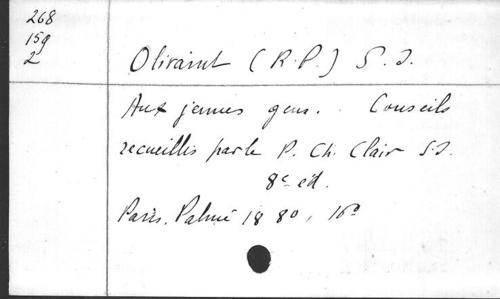 268
15g
2
Olivaint (R.P.) S.J.
Aux jeunes gens. Conseils
recueillis par le P. Ch. Clair S.J.
8e ed.
Paris. Palmé 1880, 16°